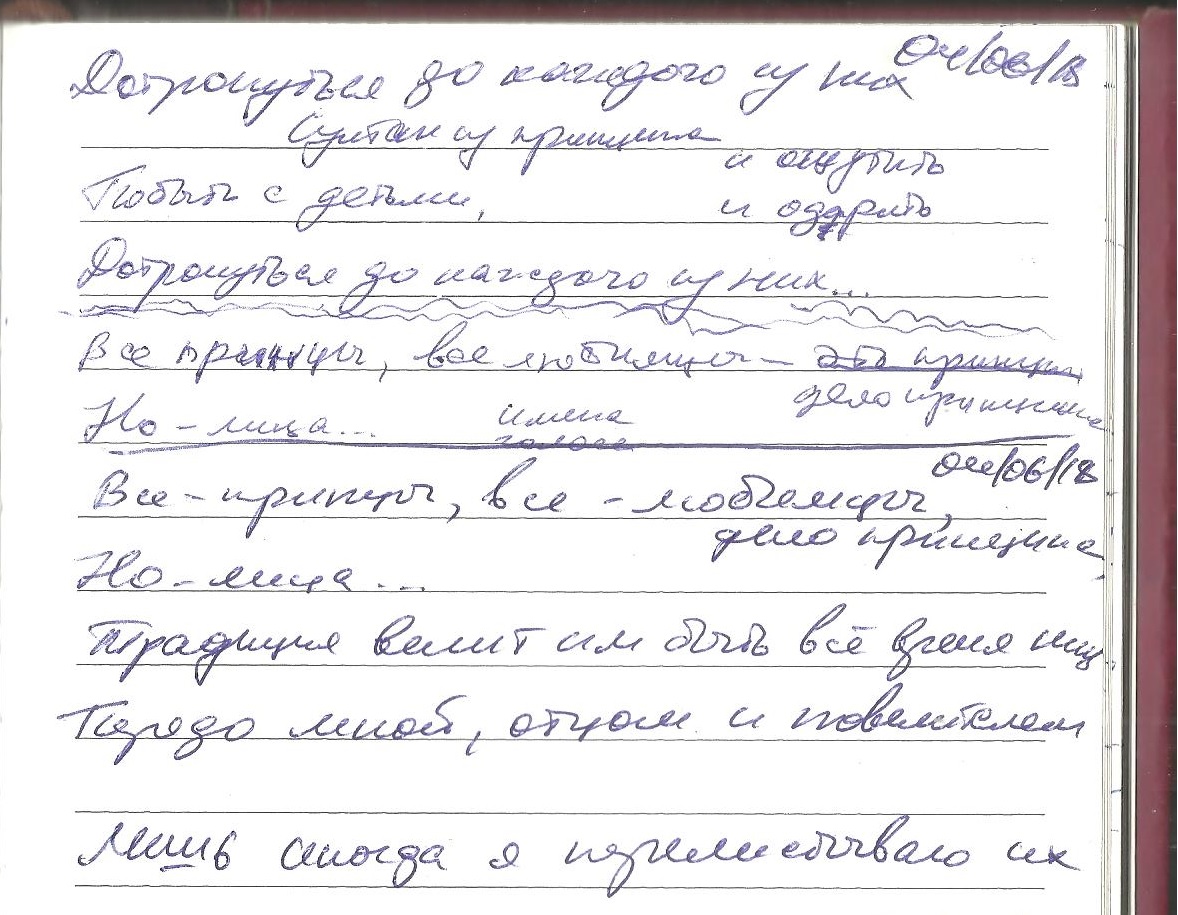 04/06/18
Дотронуться до каждого из них
Султан из принципа
и ощутить
Побыть с детьми,
и одарить
Дотронуться до каждого из них...
Все принцы, все любимцы – это принципы
дело принципа
Но – лица... имена
голоса
04/06/18
Все – принцы, все – любимцы,
дело принципа,
Но – лица...
Традиция велит им быть всё время ниц
Передо мной, отцом и повелителем
Лишь иногда я перелистываю их